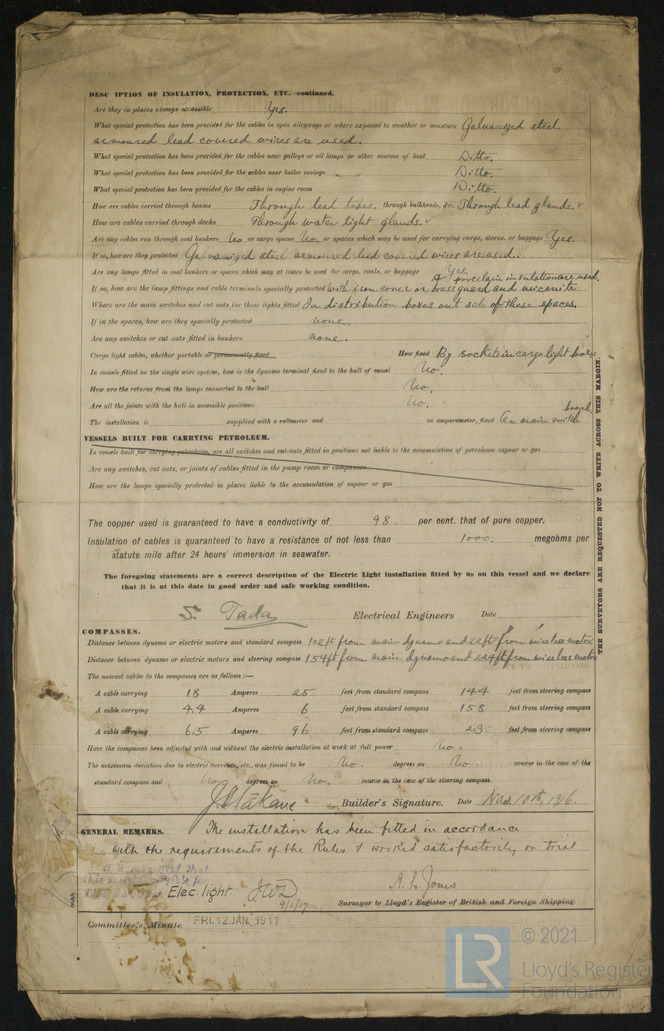 DESC IPTION OF INSULATION, PROTECTION, ETC.—continued.
Are they in places always accessible Yes.
What special protection has been provided for the cables in open alleyways or where exposed to weather or moisture Galvanized steel
armoured lead covered wires are used.
What special protection has been provided for the cables near galleys or oil lamps or other sources of heat Ditto.
What special protection has been provided for the cables near boiler casings Ditto.
What special protection has been provided for the cables in engine room Ditto.
How are cables carried through beams Through lead tubes. through bulkheads, &c. Through lead glands.
How are cables carried through decks Through water tight glands.
Are any cables run through coal bunkers No or cargo spaces No. or spaces which may be used for carrying cargo, stores, or baggage Yes.
If so, how are they protected Galvanized steel armoured lead covered wires are used.
Are any lamps fitted in coal bunkers or spaces which may at times be used for cargo, coals, or baggage Yes.
& porcelain insulation are used.
If so, how are the lamp fittings and cable terminals specially protected with iron cover or brass guard and micanite
Where are the main switches and cut outs for these lights fitted In distribution boxes out side of these spaces.
If in the spaces, how are they specially protected none.
Are any switches or cut outs fitted in bunkers none.
Cargo light cables, whether portable or permanently fixed How fixed By sockets in cargo light boxes
In vessels fitted on the single wire system, how is the dynamo terminal fixed to the hull of vessel No.
How are the returns from the lamps connected to the hull No.
Are all the joints with the hull in accessible positions No.
The installation is supplied with a voltmeter and an amperemeter, fixed On main switch
board
VESSELS BUILT FOR CARRYING PETROLEUM.
In vessels built for carrying petroleum, are all switches and cut-outs fitted in positions not liable to the accumulation of petroleum vapour or gas
Are any switches, cut outs, or joints of cables fitted in the pump room or companion
How are the lamps specially protected in places liable to the accumulation of vapour or gas
THE SURVEYORS ARE REQUESTED NOT TO WRITE ACROSS THIS MARGIN.
The copper used is guaranteed to have a conductivity of 98. per cent. that of pure copper.
Insulation of cables is guaranteed to have a resistance of not less than 1000. megohms per
statute mile after 24 hours' immersion in seawater.
The foregoing statements are a correct description of the Electric Light installation fitted by us on this vessel and we declare
that it is at this date in good order and safe working condition.
S. Tada Electrical Engineers Date
COMPASSES.
Distance between dynamo or electric motors and standard compass 102 ft from main dynamo and ft from wireless motor
Distance between dynamo or electric motors and steering compass 154 ft from main dynamo and ft from wireless motor
The nearest cables to the compasses are as follows:—
A cable carrying 18 Amperes 25 feet from standard compass 144 feet from steering compass
A cable carrying 4.4 Amperes 6 feet from standard compass 158 feet from steering compass
A cable carrying 6.5 Amperes 96 feet from standard compass 23 feet from steering compass
Have the compasses been adjusted with and without the electric installation at work at full power No.
The maximum deviation due to electric currents, etc., was found to be No. degrees on No. course in the case of the
standard compass and No. degrees on No. course in the case of the steering compass.
Builder's Signature. Date Nov. 10th, 1916.
GENERAL REMARKS. The installation has been fitted in accordance
with the requirements of the Rules & worked satisfactorily on trial
Elec. light. JWD
9/1/17
A. L. Jones
Surveyor to Lloyd's Register of British and Foreign Shipping.
Committee's Minute FRI. 12 JAN. 1917
LR
© 2021
Lloyd's Register
Foundation